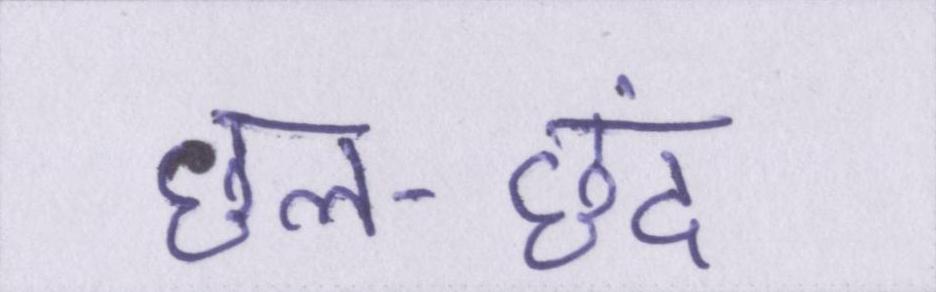 छल-छंद